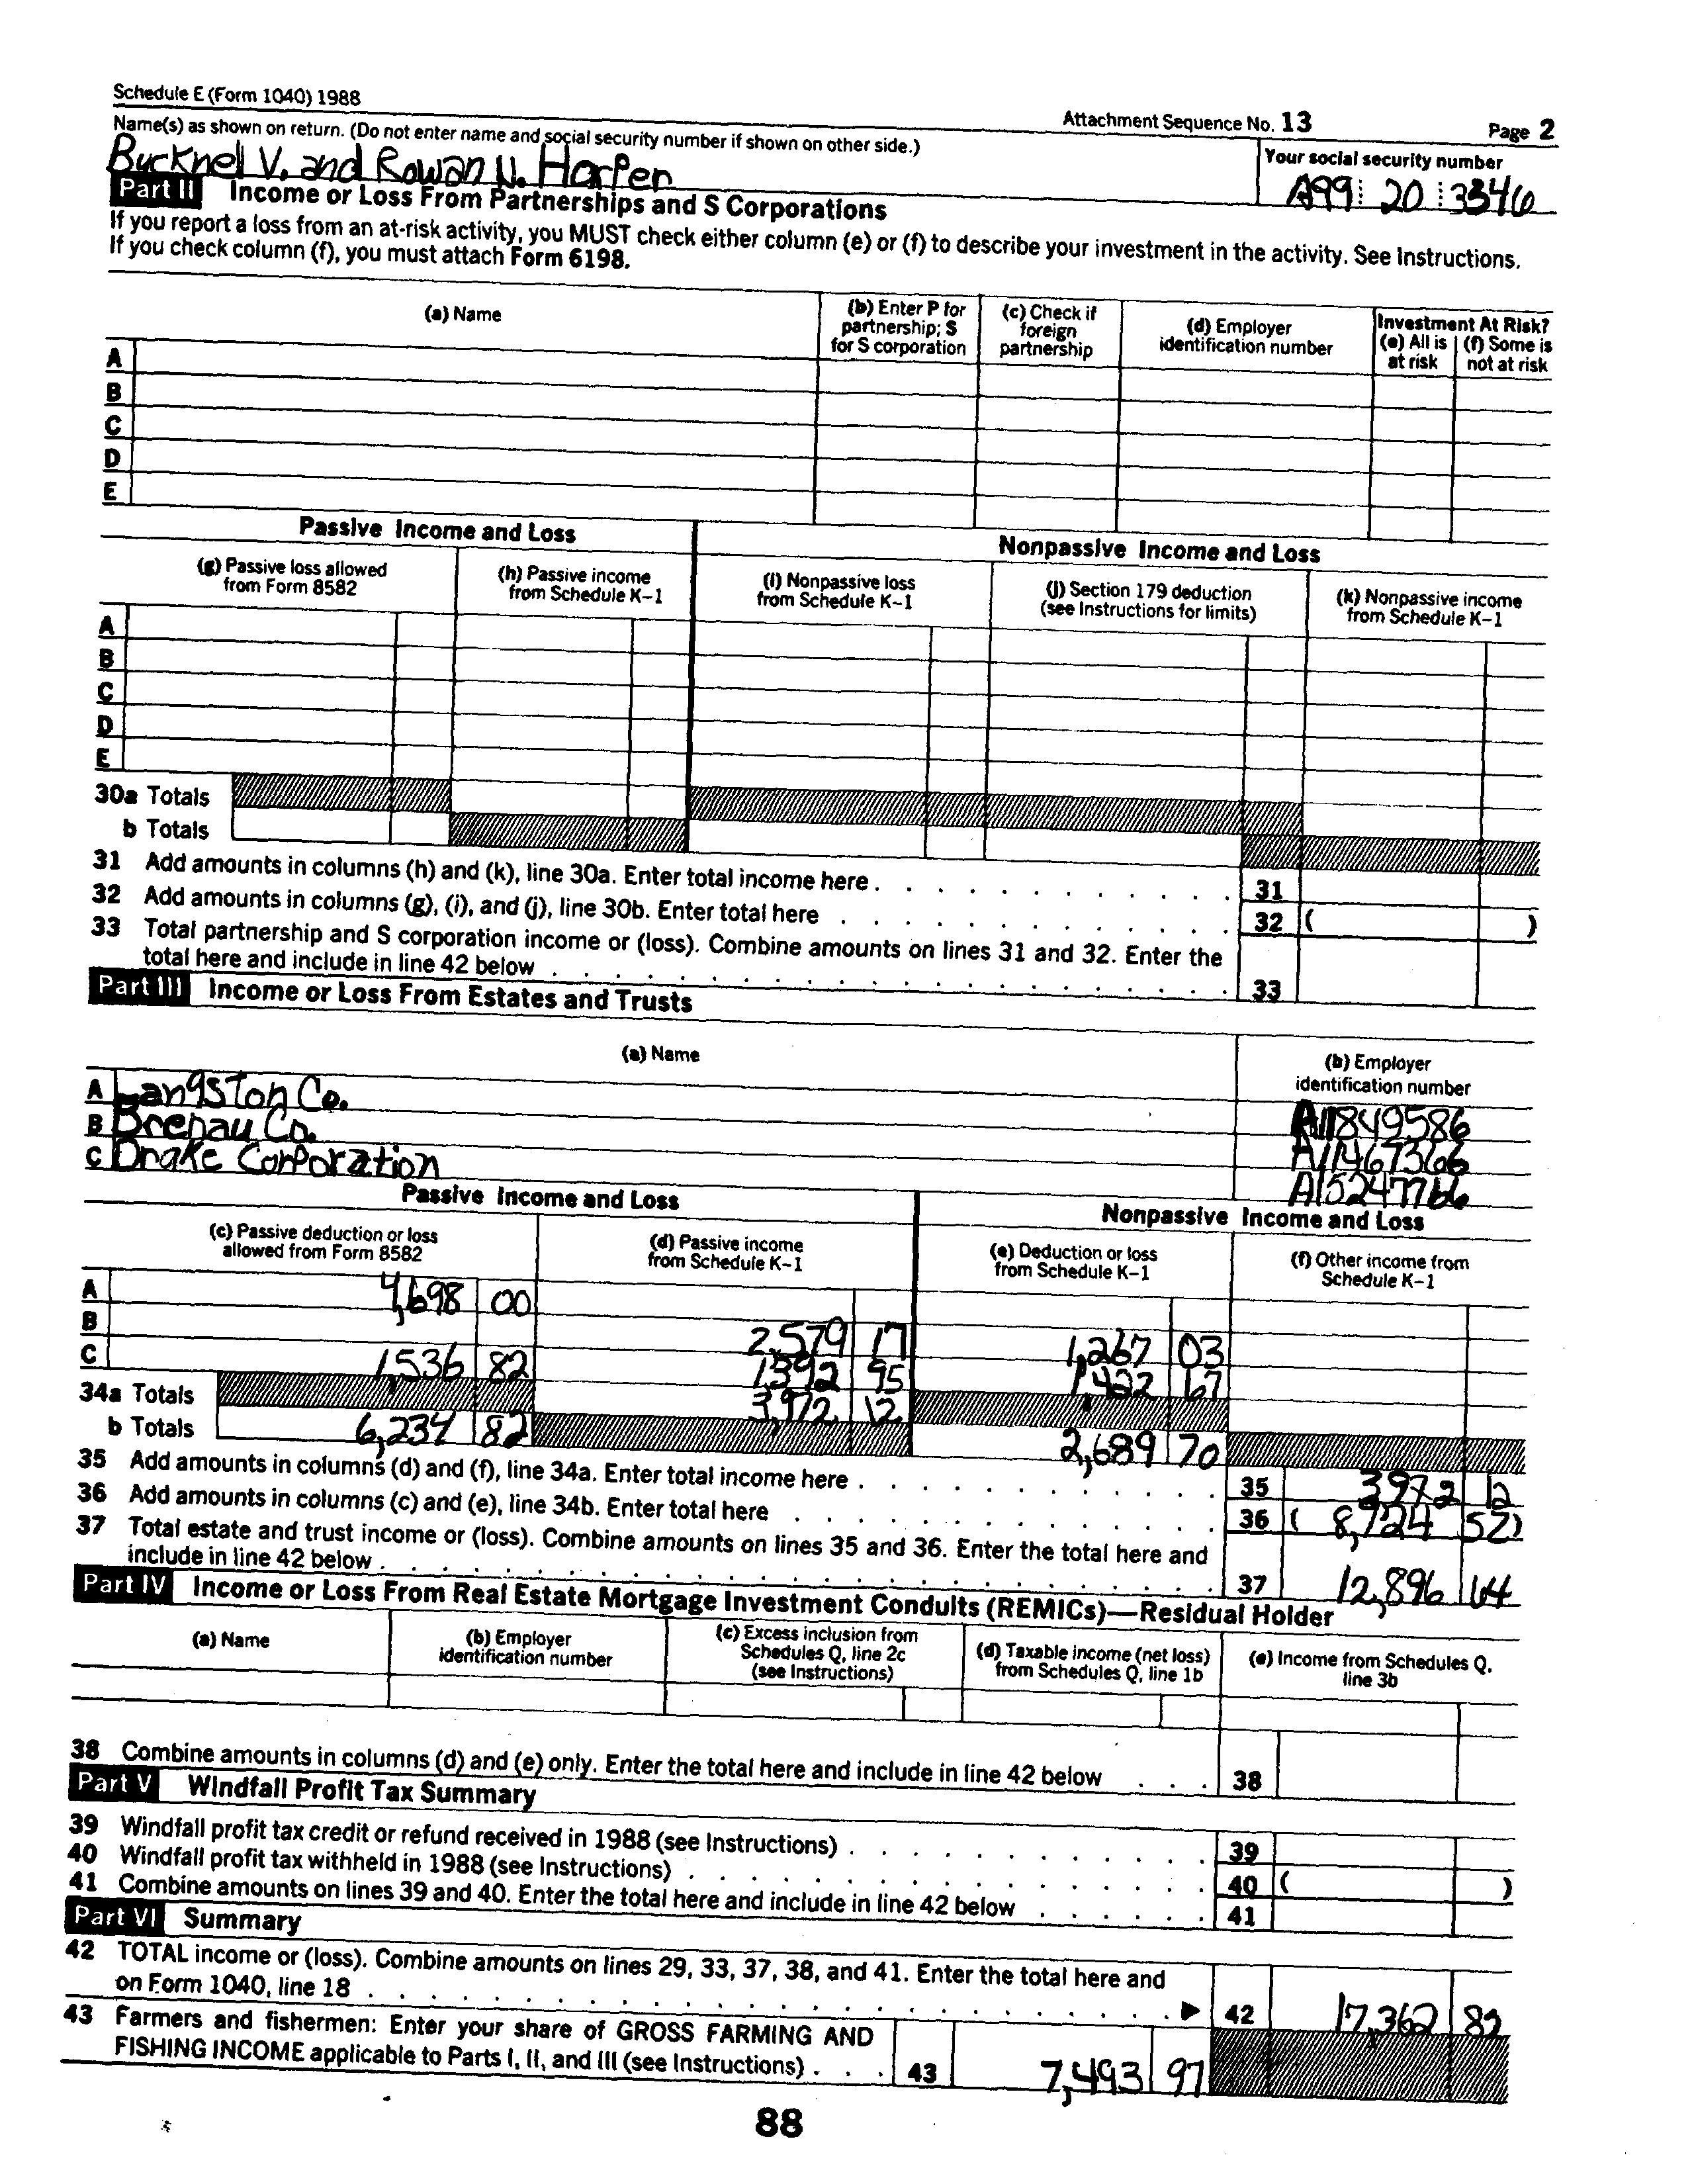 Schedule E (Form 1040) 1988
Attachment Sequence No. 13
Page 2
Name(s) as shown on return. (Do not enter name and social security number if shown on other side.)
Your social security number
Bucknel V. and Rowan N. Harper
A99 20 3346
Part II Income or Loss From Partnerships and S Corporations
If you report a loss from an at-risk activity, you MUST check either column (e) or (f) to describe your investment in the activity. See Instructions.
If you check column (f), you must attach Form 6198.
(a) Name
(b) Enter P for partnership; S for S corporation
(c) Check if foreign partnership
(d) Employer identification number
Investment At Risk?
(e) All is at risk
(f) Some is not at risk
A
B
C
D
E
Passive Income and Loss
Nonpassive Income and Loss
(g) Passive loss allowed from Form 8582
(h) Passive income from Schedule K-1
(i) Nonpassive loss from Schedule K-1
(j) Section 179 deduction (see Instructions for limits)
(k) Nonpassive income from Schedule K-1
A
B
C
D
E
30a Totals
b Totals
31 Add amounts in columns (h) and (k), line 30a. Enter total income here . 31
32 Add amounts in columns (g), (i), and (j), line 30b. Enter total here . 32 ( )
33 Total partnership and S corporation income or (loss). Combine amounts on lines 31 and 32. Enter the
total here and include in line 42 below . 33
Part III Income or Loss From Estates and Trusts
(a) Name
(b) Employer identification number
A Langston Co. A11849586
B Brenau Co. A11467366
C Drake Corporation A15247766
Passive Income and Loss
Nonpassive Income and Loss
(c) Passive deduction or loss allowed from Form 8582
(d) Passive income from Schedule K-1
(e) Deduction or loss from Schedule K-1
(f) Other income from Schedule K-1
A 4,698 00
B 2,579 17 1,267 03
C 1,536 82 1,392 95 1,422 67
34a Totals 3,972 12
b Totals 6,234 82 2,689 70
35 Add amounts in columns (d) and (f), line 34a. Enter total income here . 35 3972 12
36 Add amounts in columns (c) and (e), line 34b. Enter total here . 36 ( 8,924 52)
37 Total estate and trust income or (loss). Combine amounts on lines 35 and 36. Enter the total here and
include in line 42 below . 37 12,896 64
Part IV Income or Loss From Real Estate Mortgage Investment Conduits (REMICs)—Residual Holder
(a) Name
(b) Employer identification number
(c) Excess inclusion from Schedules Q, line 2c (see Instructions)
(d) Taxable income (net loss) from Schedules Q, line 1b
(e) Income from Schedules Q, line 3b
38 Combine amounts in columns (d) and (e) only. Enter the total here and include in line 42 below . . . 38
Part V Windfall Profit Tax Summary
39 Windfall profit tax credit or refund received in 1988 (see Instructions) . 39
40 Windfall profit tax withheld in 1988 (see Instructions) . 40 ( )
41 Combine amounts on lines 39 and 40. Enter the total here and include in line 42 below . 41
Part VI Summary
42 TOTAL income or (loss). Combine amounts on lines 29, 33, 37, 38, and 41. Enter the total here and
on Form 1040, line 18 . ▶ 42 17,362 82
43 Farmers and fishermen: Enter your share of GROSS FARMING AND
FISHING INCOME applicable to Parts I, II, and III (see Instructions) . . . 43 7,493 97
88